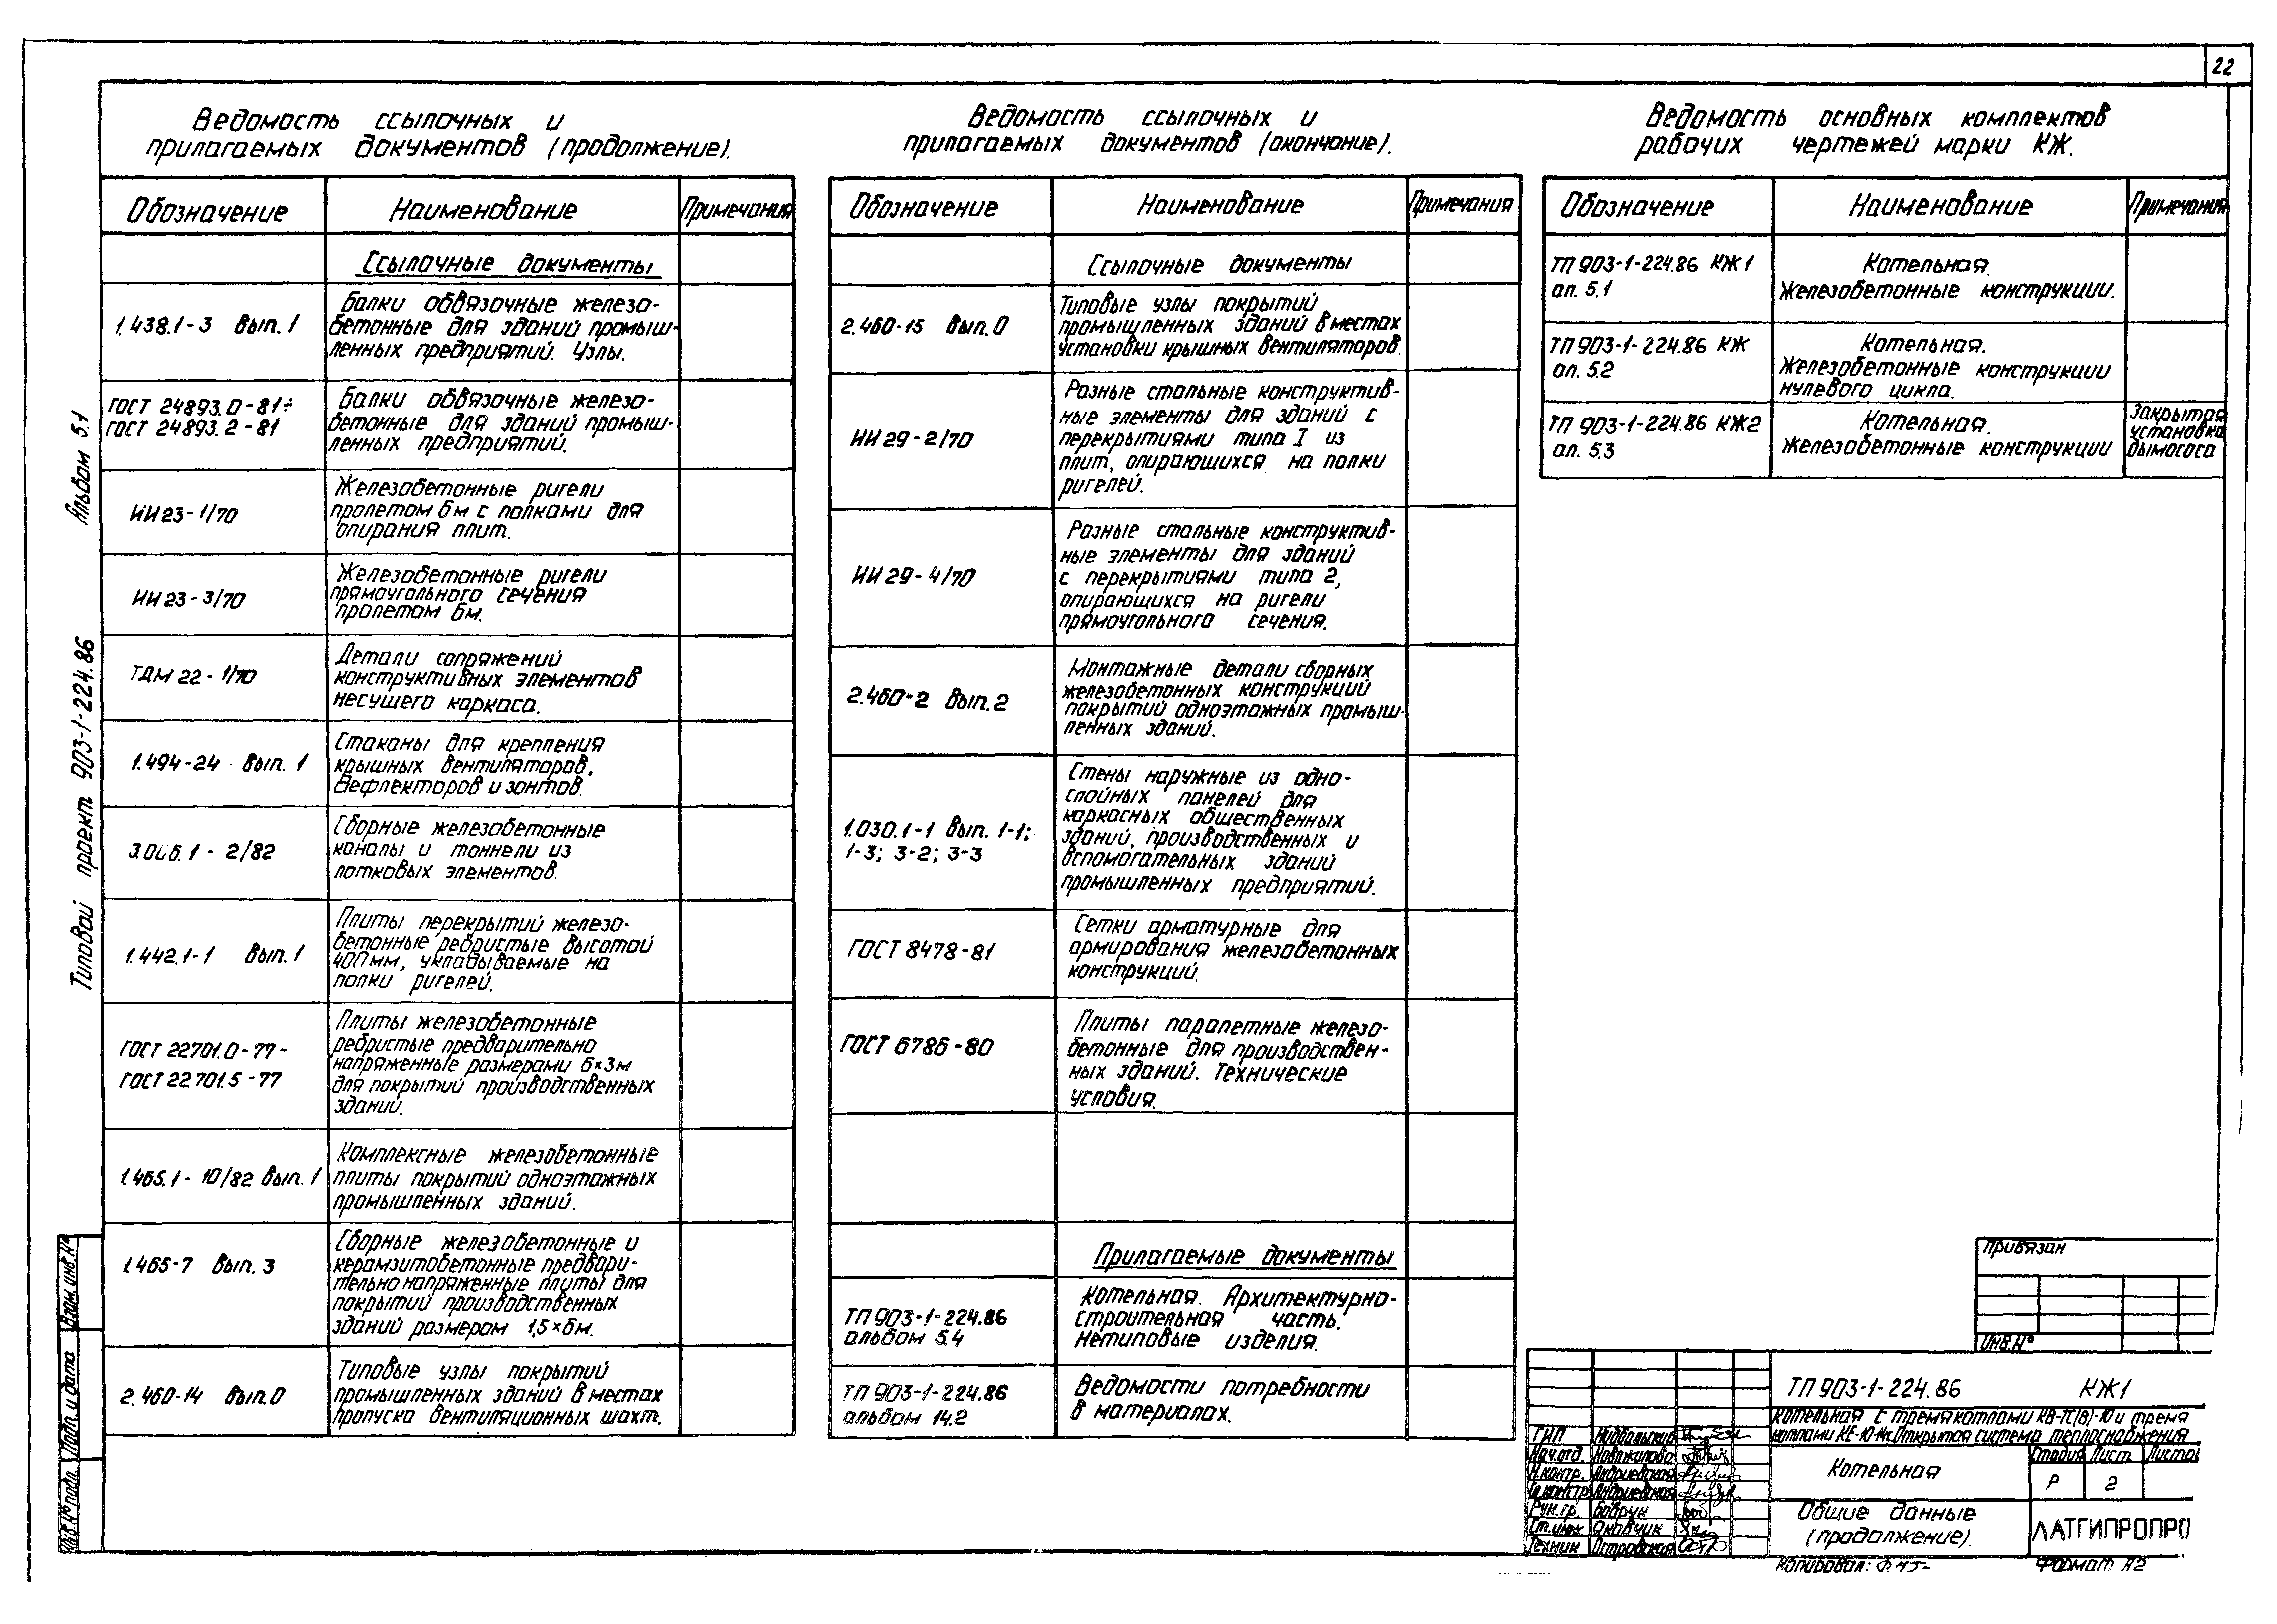 22
Ведомость ссылочных и
прилагаемых документов (продолжение).
Обозначение Наименование Примечания
Ссылочные документы
1.438.1-3 Вып. 1
Балки обвязочные железо-
бетонные для зданий промыш-
ленных предприятий. Узлы.
ГОСТ 24893.0-81÷
ГОСТ 24893.2-81
Балки обвязочные железо-
бетонные для зданий промыш-
ленных предприятий.
ИИ23-1/70
Железобетонные ригели
пролетом 6м с полками для
опирания плит.
ИИ23-3/70
Железобетонные ригели
прямоугольного сечения
пролетом 6м.
ТДМ 22-1/70
Детали сопряжений
конструктивных элементов
несущего каркаса.
1.494-24 Вып. 1
Стаканы для крепления
крышных вентиляторов,
дефлекторов и зонтов.
3.006.1-2/82
Сборные железобетонные
каналы и тоннели из
лотковых элементов.
1.442.1-1 Вып. 1
Плиты перекрытий железо-
бетонные ребристые высотой
400мм, укладываемые на
полки ригелей.
ГОСТ 22701.0-77-
ГОСТ 22701.5-77
Плиты железобетонные
ребристые предварительно
напряженные размерами 6×3м
для покрытий производственных
зданий.
1.465.1-10/82 Вып. 1
Комплексные железобетонные
плиты покрытий одноэтажных
промышленных зданий.
1.465-7 Вып. 3
Сборные железобетонные и
керамзитобетонные предвари-
тельно напряженные плиты для
покрытий производственных
зданий размером 1,5×6м.
2.460-14 Вып.0
Типовые узлы покрытий
промышленных зданий в местах
пропуска вентиляционных шахт.
Ведомость ссылочных и
прилагаемых документов (окончание).
Обозначение Наименование Примечания
Ссылочные документы
2.460-15 Вып.0
Типовые узлы покрытий
промышленных зданий в местах
установки крышных вентиляторов.
ИИ 29-2/70
Разные стальные конструктив-
ные элементы для зданий с
перекрытиями типа I из
плит, опирающихся на полки
ригелей.
ИИ 29-4/70
Разные стальные конструктив-
ные элементы для зданий
с перекрытиями типа 2,
опирающихся на ригели
прямоугольного сечения.
2.460-2 Вып.2
Монтажные детали сборных
железобетонных конструкций
покрытий одноэтажных промыш-
ленных зданий.
1.030.1-1 Вып. 1-1;
1-3; 3-2; 3-3
Стены наружные из одно-
слойных панелей для
каркасных общественных
зданий, производственных и
вспомогательных зданий
промышленных предприятий.
ГОСТ 8478-81
Сетки арматурные для
армирования железобетонных
конструкций.
ГОСТ 6786-80
Плиты парапетные железо-
бетонные для производствен-
ных зданий. Технические
условия.
Прилагаемые документы
ТП 903-1-224.86
альбом 5.4
Котельная. Архитектурно-
строительная часть.
Нетиповые изделия.
ТП 903-1-224.86
альбом 14.2
Ведомости потребности
в материалах.
Ведомость основных комплектов
рабочих чертежей марки КЖ.
Обозначение Наименование Примечания
ТП 903-1-224.86 КЖ1
ал. 5.1
Котельная.
Железобетонные конструкции.
ТП 903-1-224.86 КЖ
ал. 5.2
Котельная.
Железобетонные конструкции
нулевого цикла.
ТП 903-1-224.86 КЖ2
ал. 5.3
Котельная.
Железобетонные конструкции
Закрытая
установка
дымососа
Типовой проект 903-1-224.86 Альбом 5.1
Взам. инв. №
Подп. и дата
Инв. № подл.
Привязан
Инв. №
ТП 903-1-224.86 КЖ1
Котельная с тремя котлами КВ-ТС(В)-10 и тремя
котлами КЕ-10-14с. Открытая система теплоснабжения
ГИП
Нач.отд.
Н.контр. Андриевская
Гл.констр. Андриевская
Рук. гр. Бобрук
Ст.инж.
Техник Островская
Котельная
Стадия Лист Листов
Р 2
Общие данные
(продолжение).
ЛАТГИПРОПРО
Копировал:
Формат А2